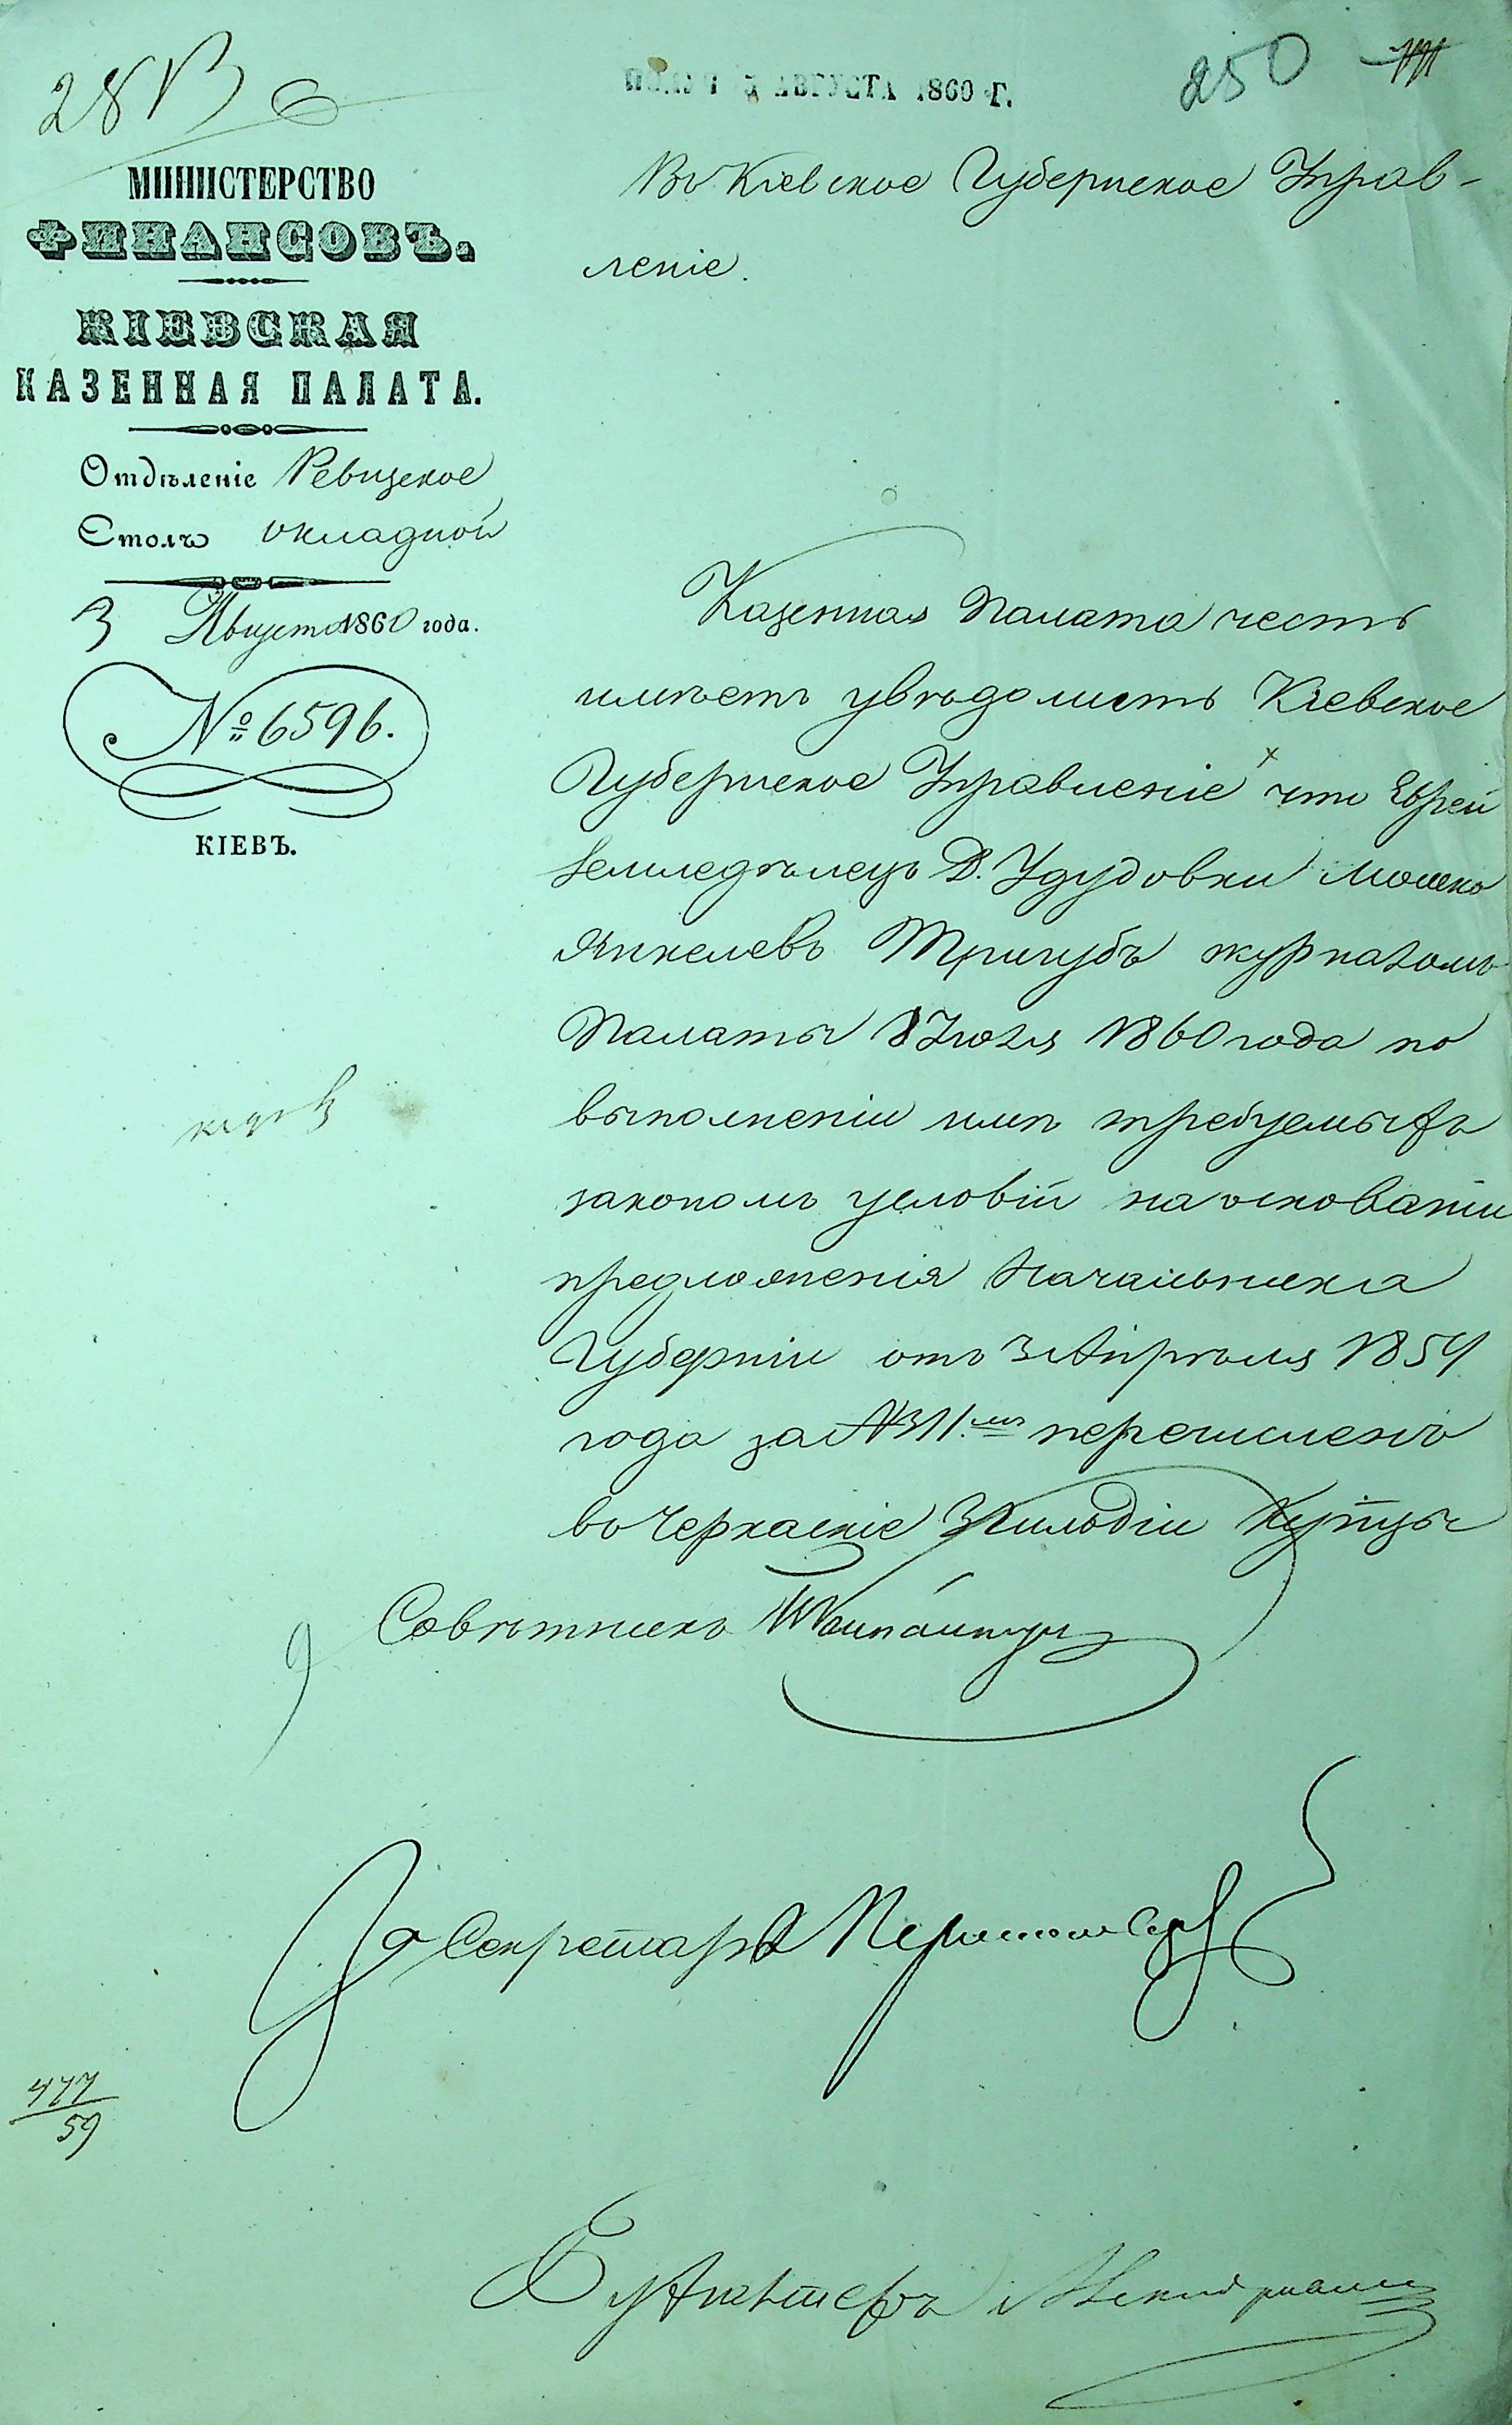 28
250
АВГУСТА 1860 Г.
МИНИСТЕРСТВО
ФИНАНСОВЪ.
КІЕВСКАЯ
КАЗЕННАЯ ПАЛАТА.
Отдѣленіе Ревизское
Столъ окладной
3 Августа 1860 года.
№ 6596.
КІЕВЪ.
Въ Кіевское Губернское Прав-
леніе.
Казенная Палата честь
имѣетъ увѣдомить Кіевское
Губернское Правленіе что Еврей
Земледѣлецъ Д. Удудовки Мошко
Янкелевъ Тригубъ журналомъ
Палаты 8 Іюля 1860 года по
выполненіи имъ требуемыхъ
закономъ условій на основаніи
предложенія Начальника
Губерніи отъ 3 Апрѣля 1859
года за № 311 перечисленъ
въ Черкаскіе 3 Гильдіи Купцы
Совѣтникъ
За Секретаря
477
59
Бухгалтеръ